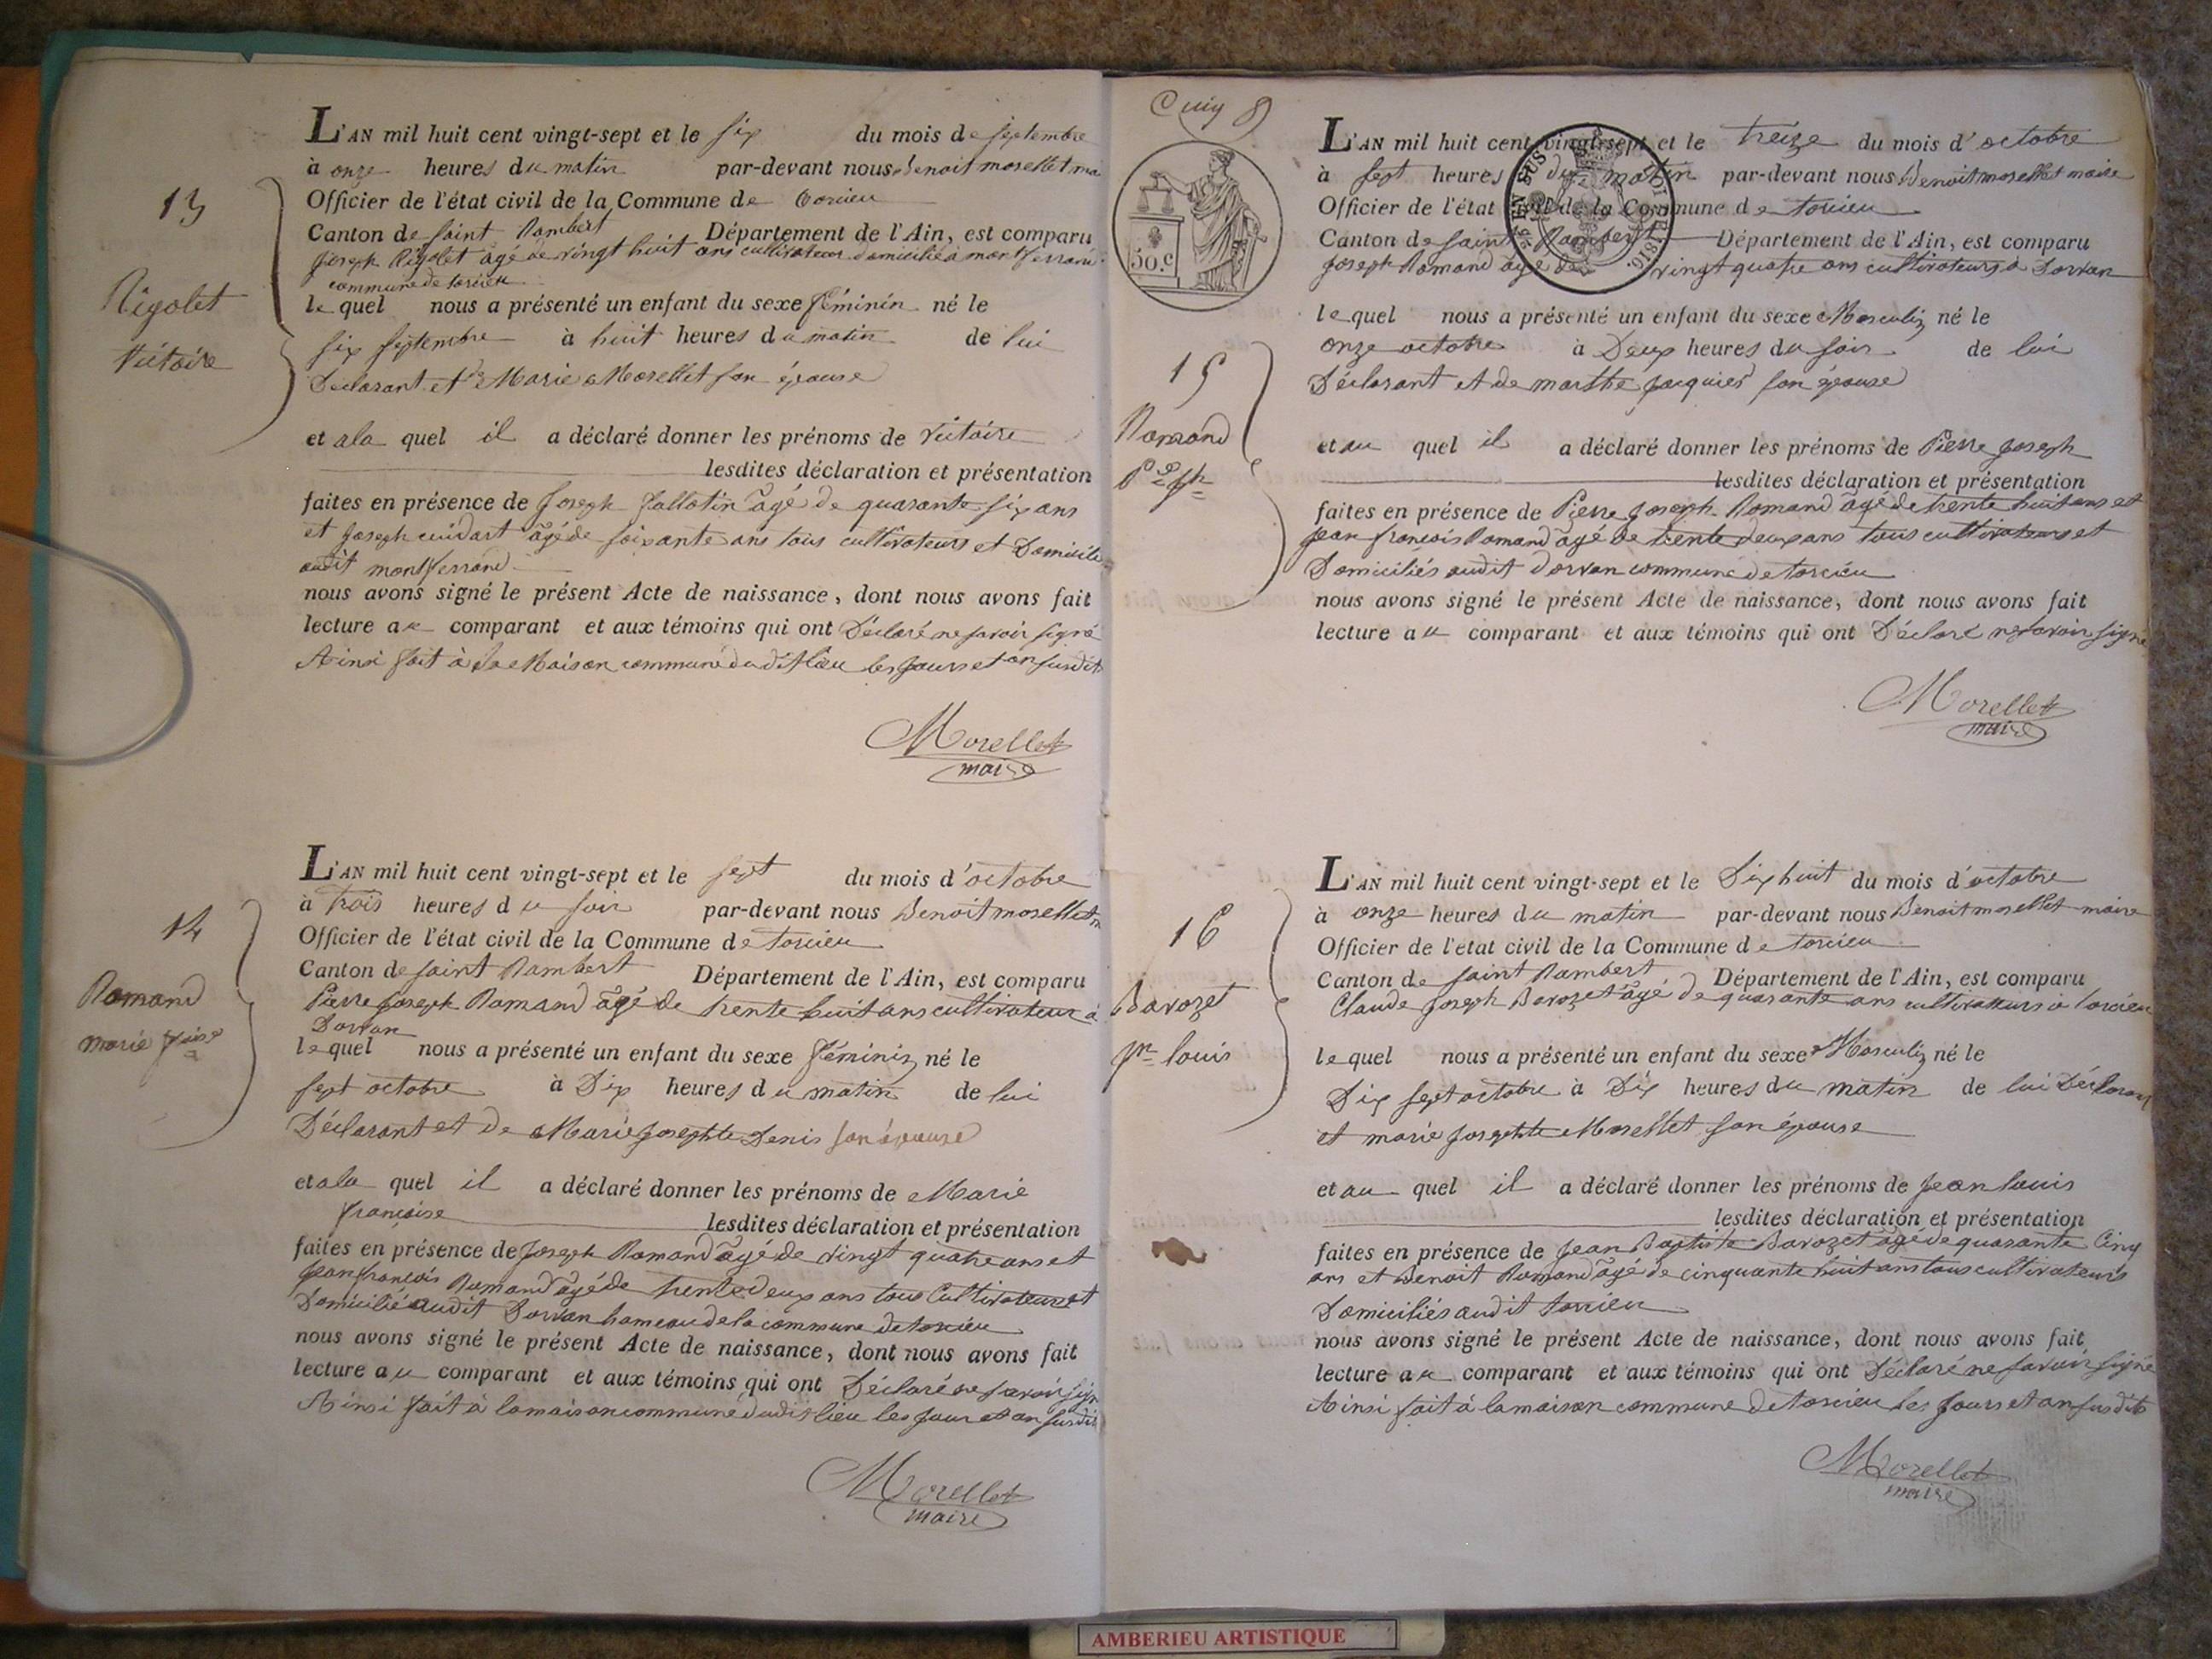 13
Rigolet
Victoire
L'AN mil huit cent vingt-sept et le six du mois de septembre
à onze heures du matin par-devant nous Benoit morellet ma
Officier de l'état civil de la Commune de torcieu
Canton de saint Rambert Département de l'Ain, est comparu
joseph Rigolet agé de vingt huit ans cultivateur domicilié à montferrand
commune de torcieu
le quel nous a présenté un enfant du sexe féminin né le
six septembre à huit heures du matin de lui
Déclarant et de Marie Morellet son épouse
et a la quel il a déclaré donner les prénoms de victoire
lesdites déclaration et présentation
faites en présence de Joseph agé de quarante six ans
et joseph agé de soixante ans tous cultivateurs et Domicilie
audit montferrand
nous avons signé le présent Acte de naissance, dont nous avons fait
lecture au comparant et aux témoins qui ont Déclaré ne savoir signé
Ainsi fait à la Maison commune dudit lieu les jours et an susdits
Morellet
maire
14
Romand
marie fçoise
L'AN mil huit cent vingt-sept et le sept du mois d'octobre
à trois heures du soir par-devant nous Benoit morellet m
Officier de l'état civil de la Commune de torcieu
Canton de saint Rambert Département de l'Ain, est comparu
Pierre joseph Romand agé de trente huit ans cultivateur à
Dorvan
le quel nous a présenté un enfant du sexe féminin né le
sept octobre à Dix heures du matin de lui
Déclarant et de Marie josephte Denis son épouse
et a la quel il a déclaré donner les prénoms de Marie
françoise lesdites déclaration et présentation
faites en présence de joseph Romand agé de vingt quatre ans et
jean françois Romand agé de trente deux ans tous Cultivateurs et
Domicilié audit Dorvan hameau de la commune de torcieu
nous avons signé le présent Acte de naissance, dont nous avons fait
lecture au comparant et aux témoins qui ont Déclaré ne savoir sign
Ainsi fait à la maison commune dudit lieu les jour et an susdit
Morellet
maire
50.c
EN SUS
1816.
15
Romand
L'AN mil huit cent vingt-sept et le treize du mois d'octobre
à sept heures du matin par-devant nous Benoit morellet maire
Officier de l'état civil de la Commune de torcieu
Canton de saint Rambert Département de l'Ain, est comparu
joseph Romand agé de vingt quatre ans cultivateurs à Dorvan
le quel nous a présenté un enfant du sexe Masculin né le
onze octobre à Deux heures du soir de lui
Déclarant et de marthe jacquier son épouse
et au quel il a déclaré donner les prénoms de Pierre joseph
lesdites déclaration et présentation
faites en présence de Pierre joseph Romand agé de trente huit ans et
jean françois Romand agé de trente deux ans tous cultivateurs et
Domiciliés audit dorvan commune de torcieu
nous avons signé le présent Acte de naissance, dont nous avons fait
lecture au comparant et aux témoins qui ont Déclaré ne savoir signé
Morellet
maire
16
Bavozet
jn louis
L'AN mil huit cent vingt-sept et le Dix huit du mois d'octobre
à onze heures du matin par-devant nous Benoit morellet maire
Officier de l'état civil de la Commune de torcieu
Canton de saint Rambert Département de l'Ain, est comparu
Claude joseph Bavozet agé de quarante ans cultivateurs à torcieu
le quel nous a présenté un enfant du sexe Masculin né le
Dix sept octobre à Dix heures du matin de lui Déclarant
et marie josephte Morellet son épouse
et au quel il a déclaré donner les prénoms de jean louis
lesdites déclaration et présentation
faites en présence de jean Baptiste Bavozet agé de quarante Cinq
ans et Benoit Romand agé de cinquante huit ans tous cultivateurs
Domiciliés audit torcieu
nous avons signé le présent Acte de naissance, dont nous avons fait
lecture au comparant et aux témoins qui ont Déclaré ne savoir signé
Ainsi fait à la maison commune de torcieu les jours et an susdits
Morellet
maire
AMBERIEU ARTISTIQUE